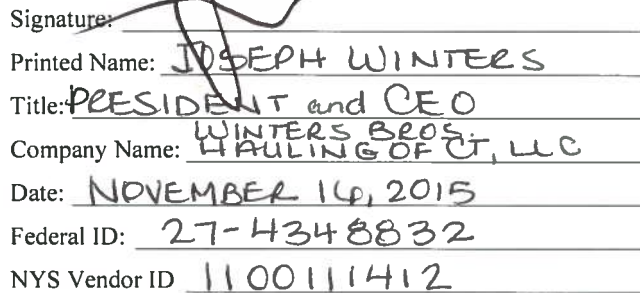 Signature:
Printed Name: JOSEPH WINTERS
Title: PRESIDENT and CEO
WINTERS BROS.
Company Name: HAULING OF CT, LLC
Date: NOVEMBER 16, 2015
Federal ID: 27-4348832
NYS Vendor ID 1100111412